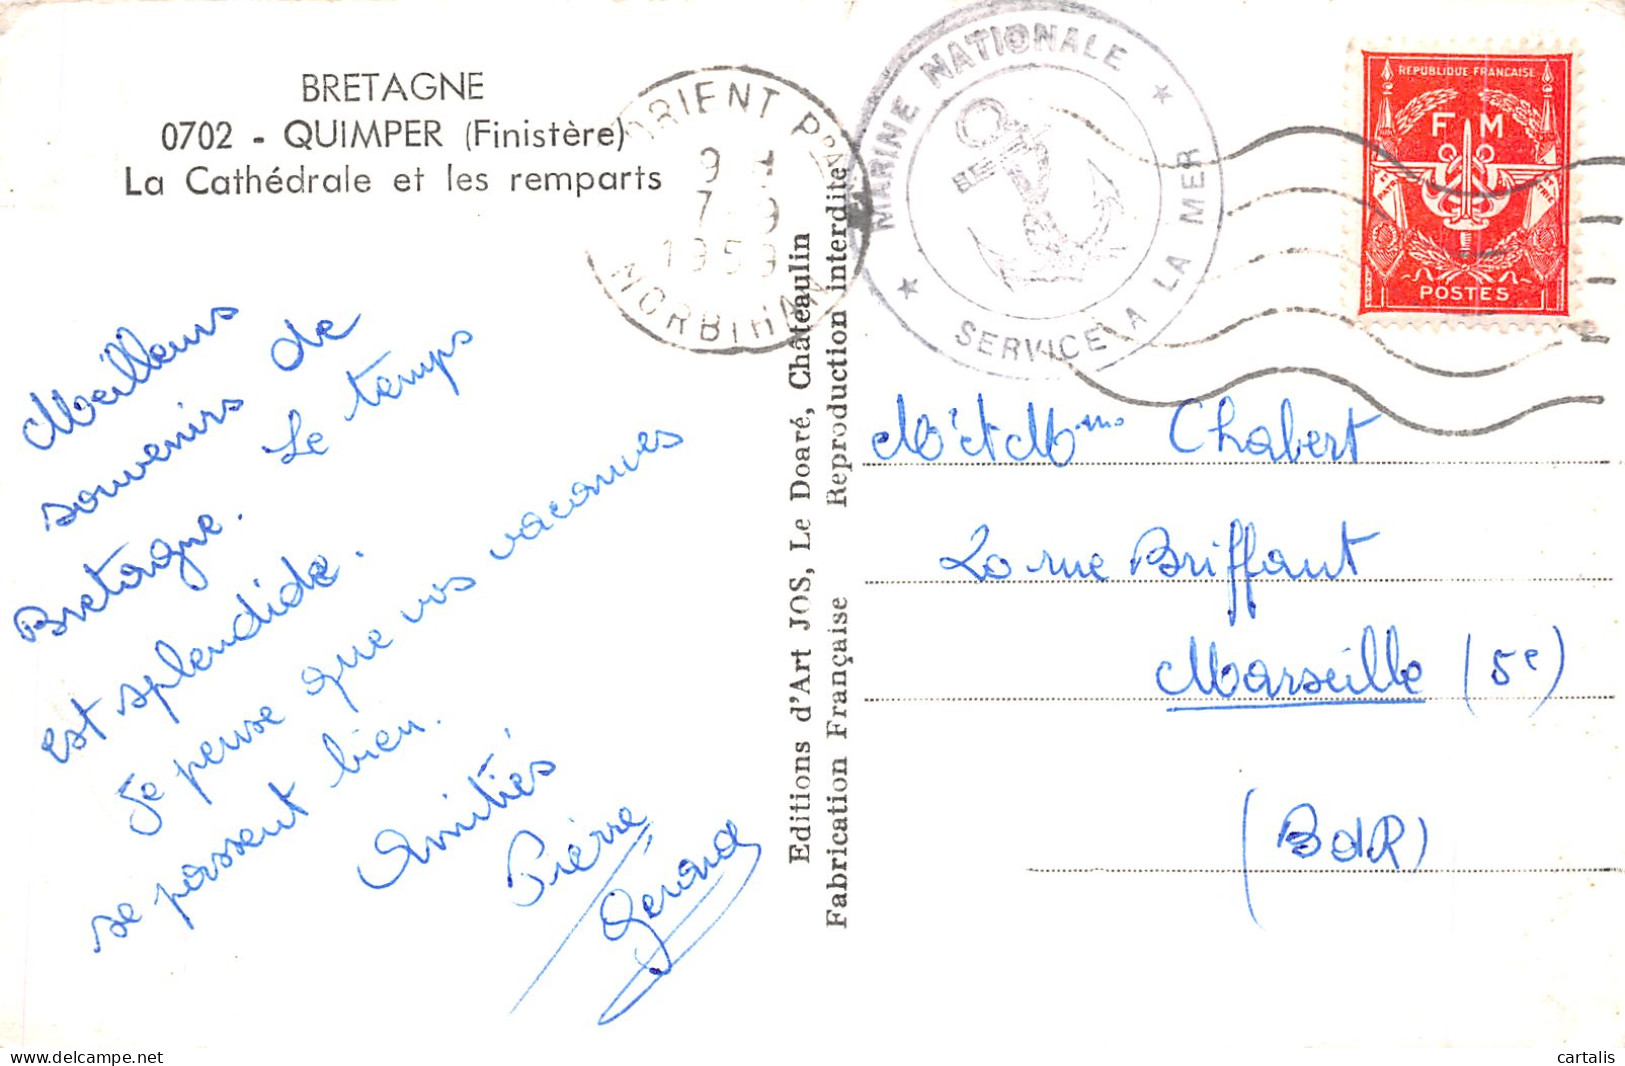 BRETAGNE
0702 - QUIMPER (Finistère)
La Cathédrale et les remparts
MORBIHAN
1959
MARINE NATIONALE
SERVICE A LA MER
REPUBLIQUE FRANÇAISE
F M
POSTES
Meilleurs
souvenirs de
Bretagne. Le temps
est splendide.
Je pense que vos vacances
se passent bien.
Amitiés
Pierre
Editions d'Art JOS, Le Doaré, Châteaulin
Fabrication Française Reproduction interdite
Mr et Mme Chabert
rue Briffaut
Marseille (5e)
(BdR)
cartalis